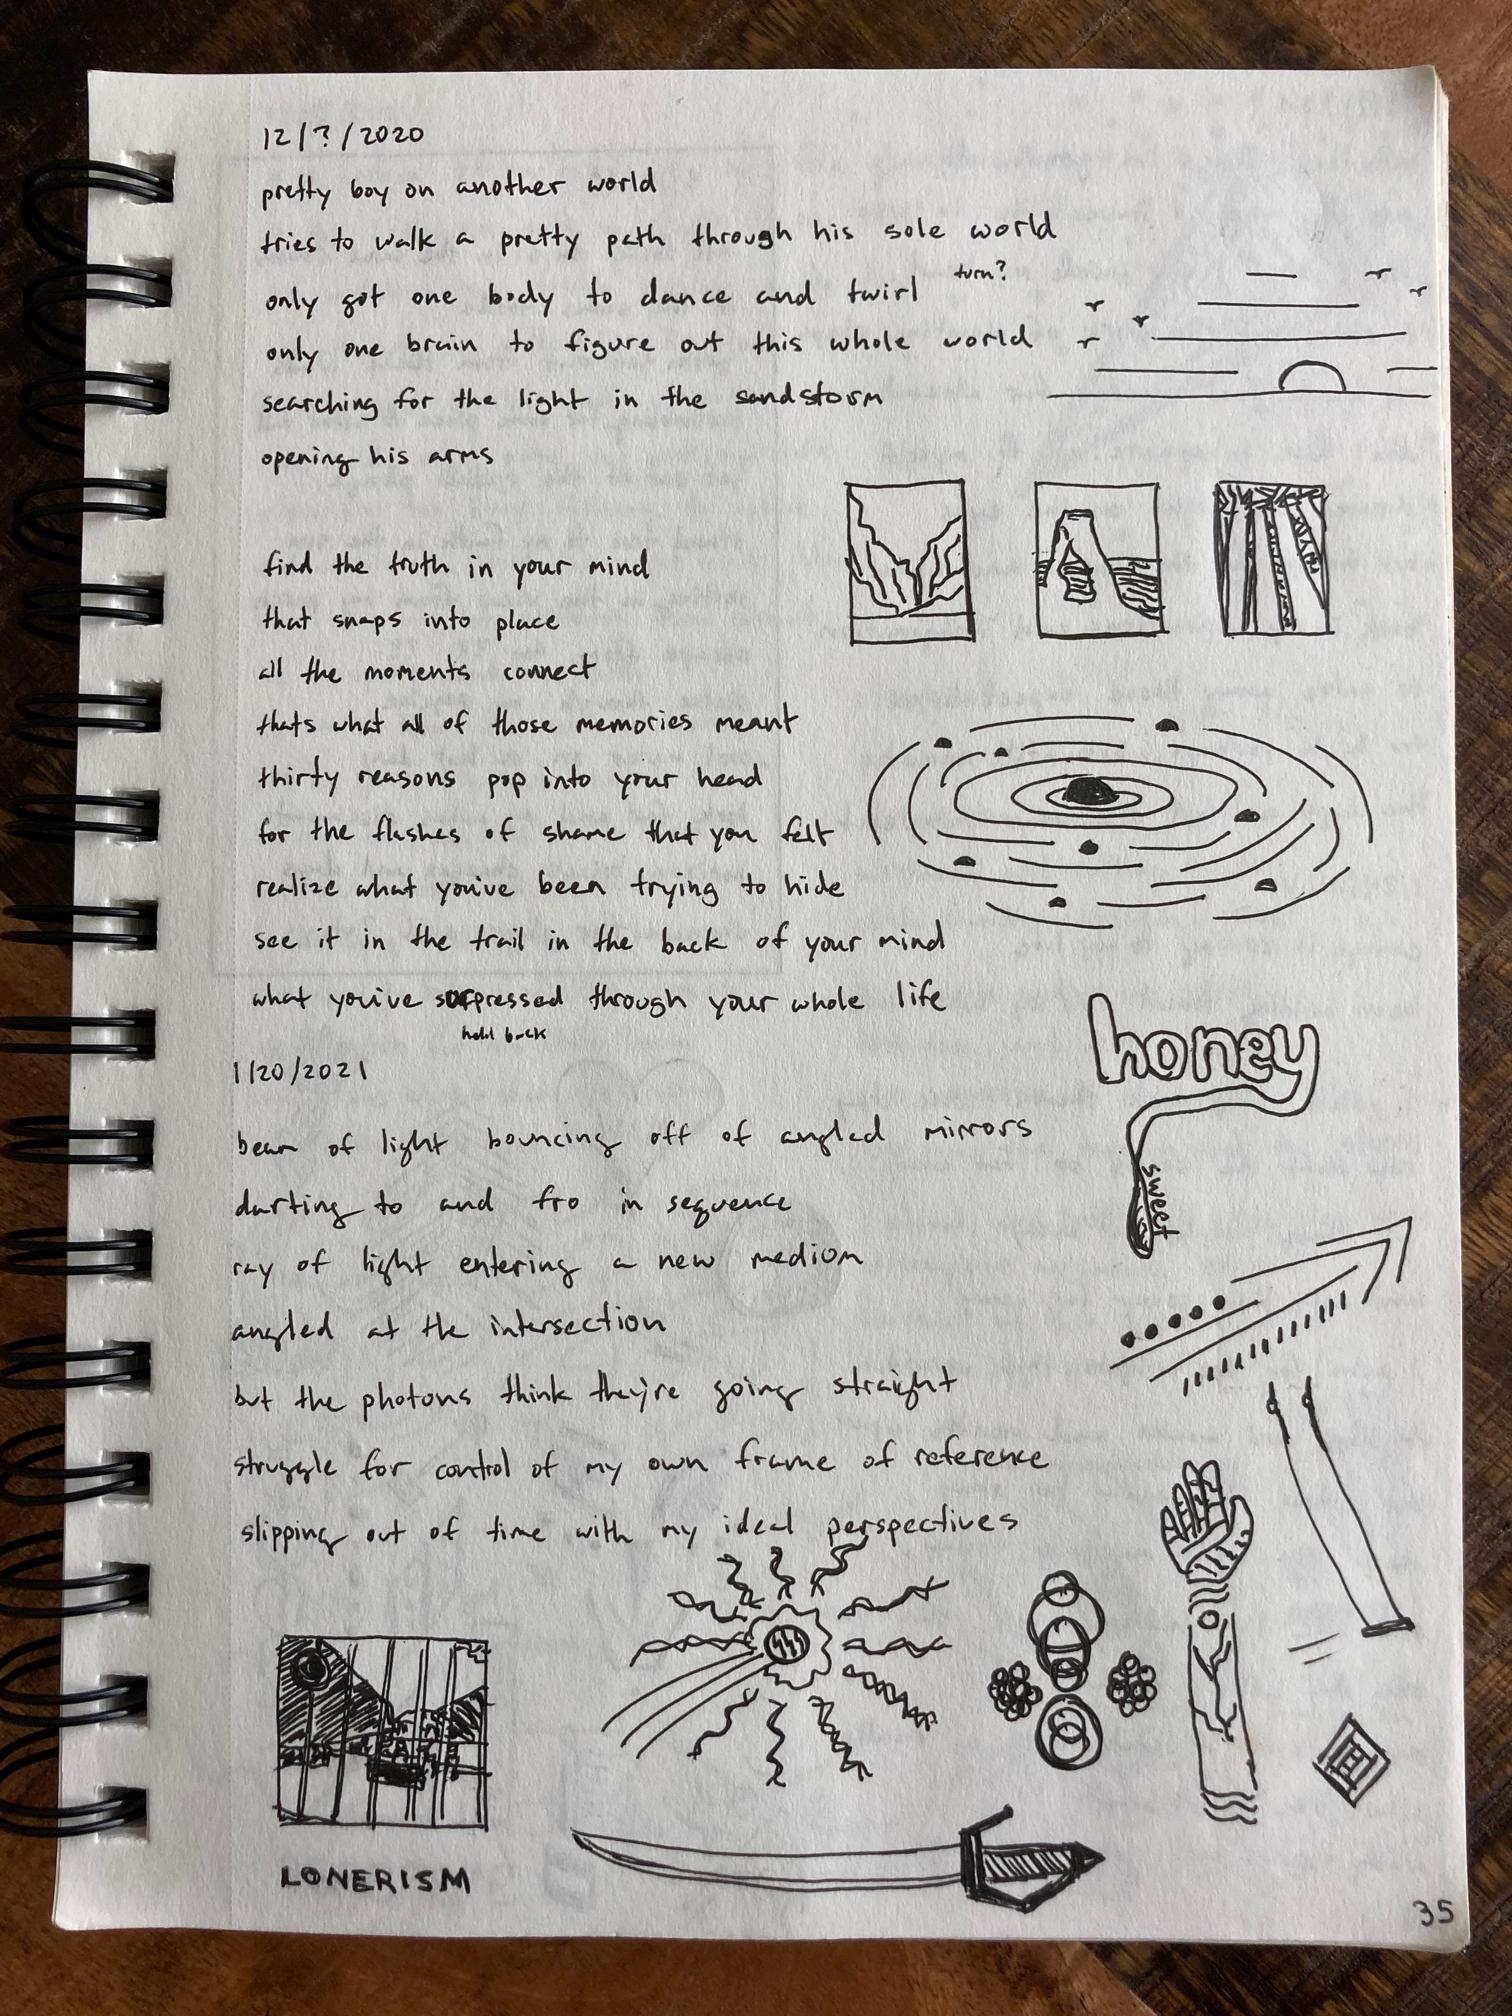 12/?/2020
pretty boy on another world
tries to walk a pretty path through his sole world
turn?
only got one body to dance and twirl
only one brain to figure out this whole world
searching for the light in the sandstorm
opening his arms
find the truth in your mind
that snaps into place
all the moments connect
thats what all of those memories meant
thirty reasons pop into your head
for the flashes of shame that you felt
realize what you've been trying to hide
see it in the trail in the back of your mind
what you've surpressed through your whole life
hold back
honey
sweet
1/20/2021
beam of light bouncing off of angled mirrors
darting to and fro in sequence
ray of light entering a new medium
angled at the intersection
but the photons think they're going straight
struggle for control of my own frame of reference
slipping out of time with my ideal perspectives
LONERISM
35